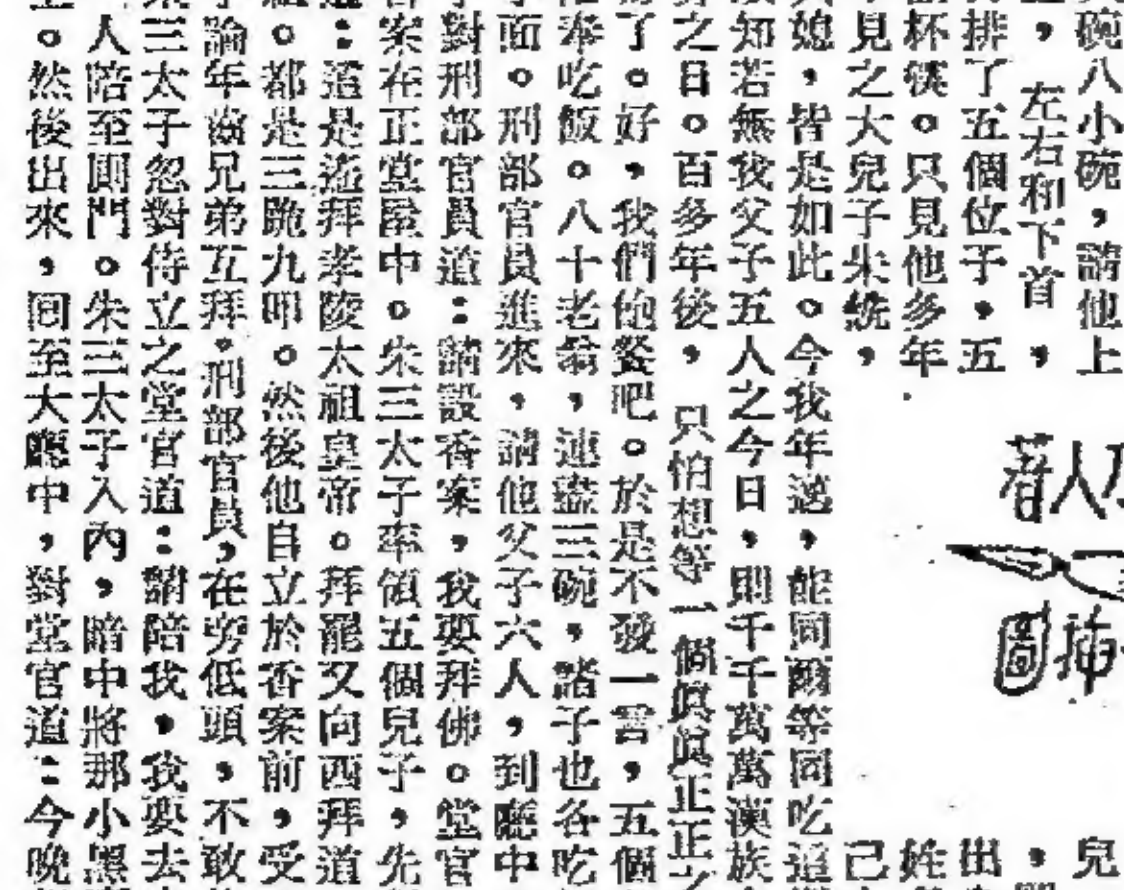 碗八小碗,請他上
,左右和下首,
排了五個位子,五
杯筷。只見他多年
見之大兒子朱統,
媳,皆是如此。今我年邁,能同爾等同吃這
知若無我父子五人之今日,則千千萬萬漢族
之日。百多年後,只怕想等一個眞眞正正之
了。好,我們飽餐吧。於是不發一言,五個
奉吃飯。八十老翁,連盡三碗,諸子也各吃
面。刑部官員進來,請他父子六人,到廳中
對刑部官員道:請設香案,我要拜佛。堂官
案在正堂居中。朱三太子率領五個兒子,先
:這是遙拜孝陵太祖皇帝。拜罷又向西拜道
。都是三跪九叩。然後他自立於香案前,受
論年齒兄弟互拜。刑部官員,在旁低頭,不敢
三太子忽對侍立之堂官道:請陪我,我要去
人陪至則門。朱三太子入內,暗中將那小黑
。然後出來,回至大廳中,對堂官道:今晚
人著
插圖
兒
,
出
姓
己